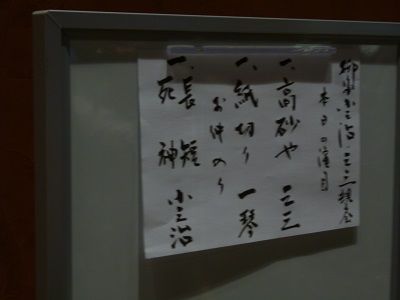 柳家小三治 三三 親子会
本日の演目
一、高砂や 三三
一、紙切り 一琴
お仲入り
一、長短
死神 小三治